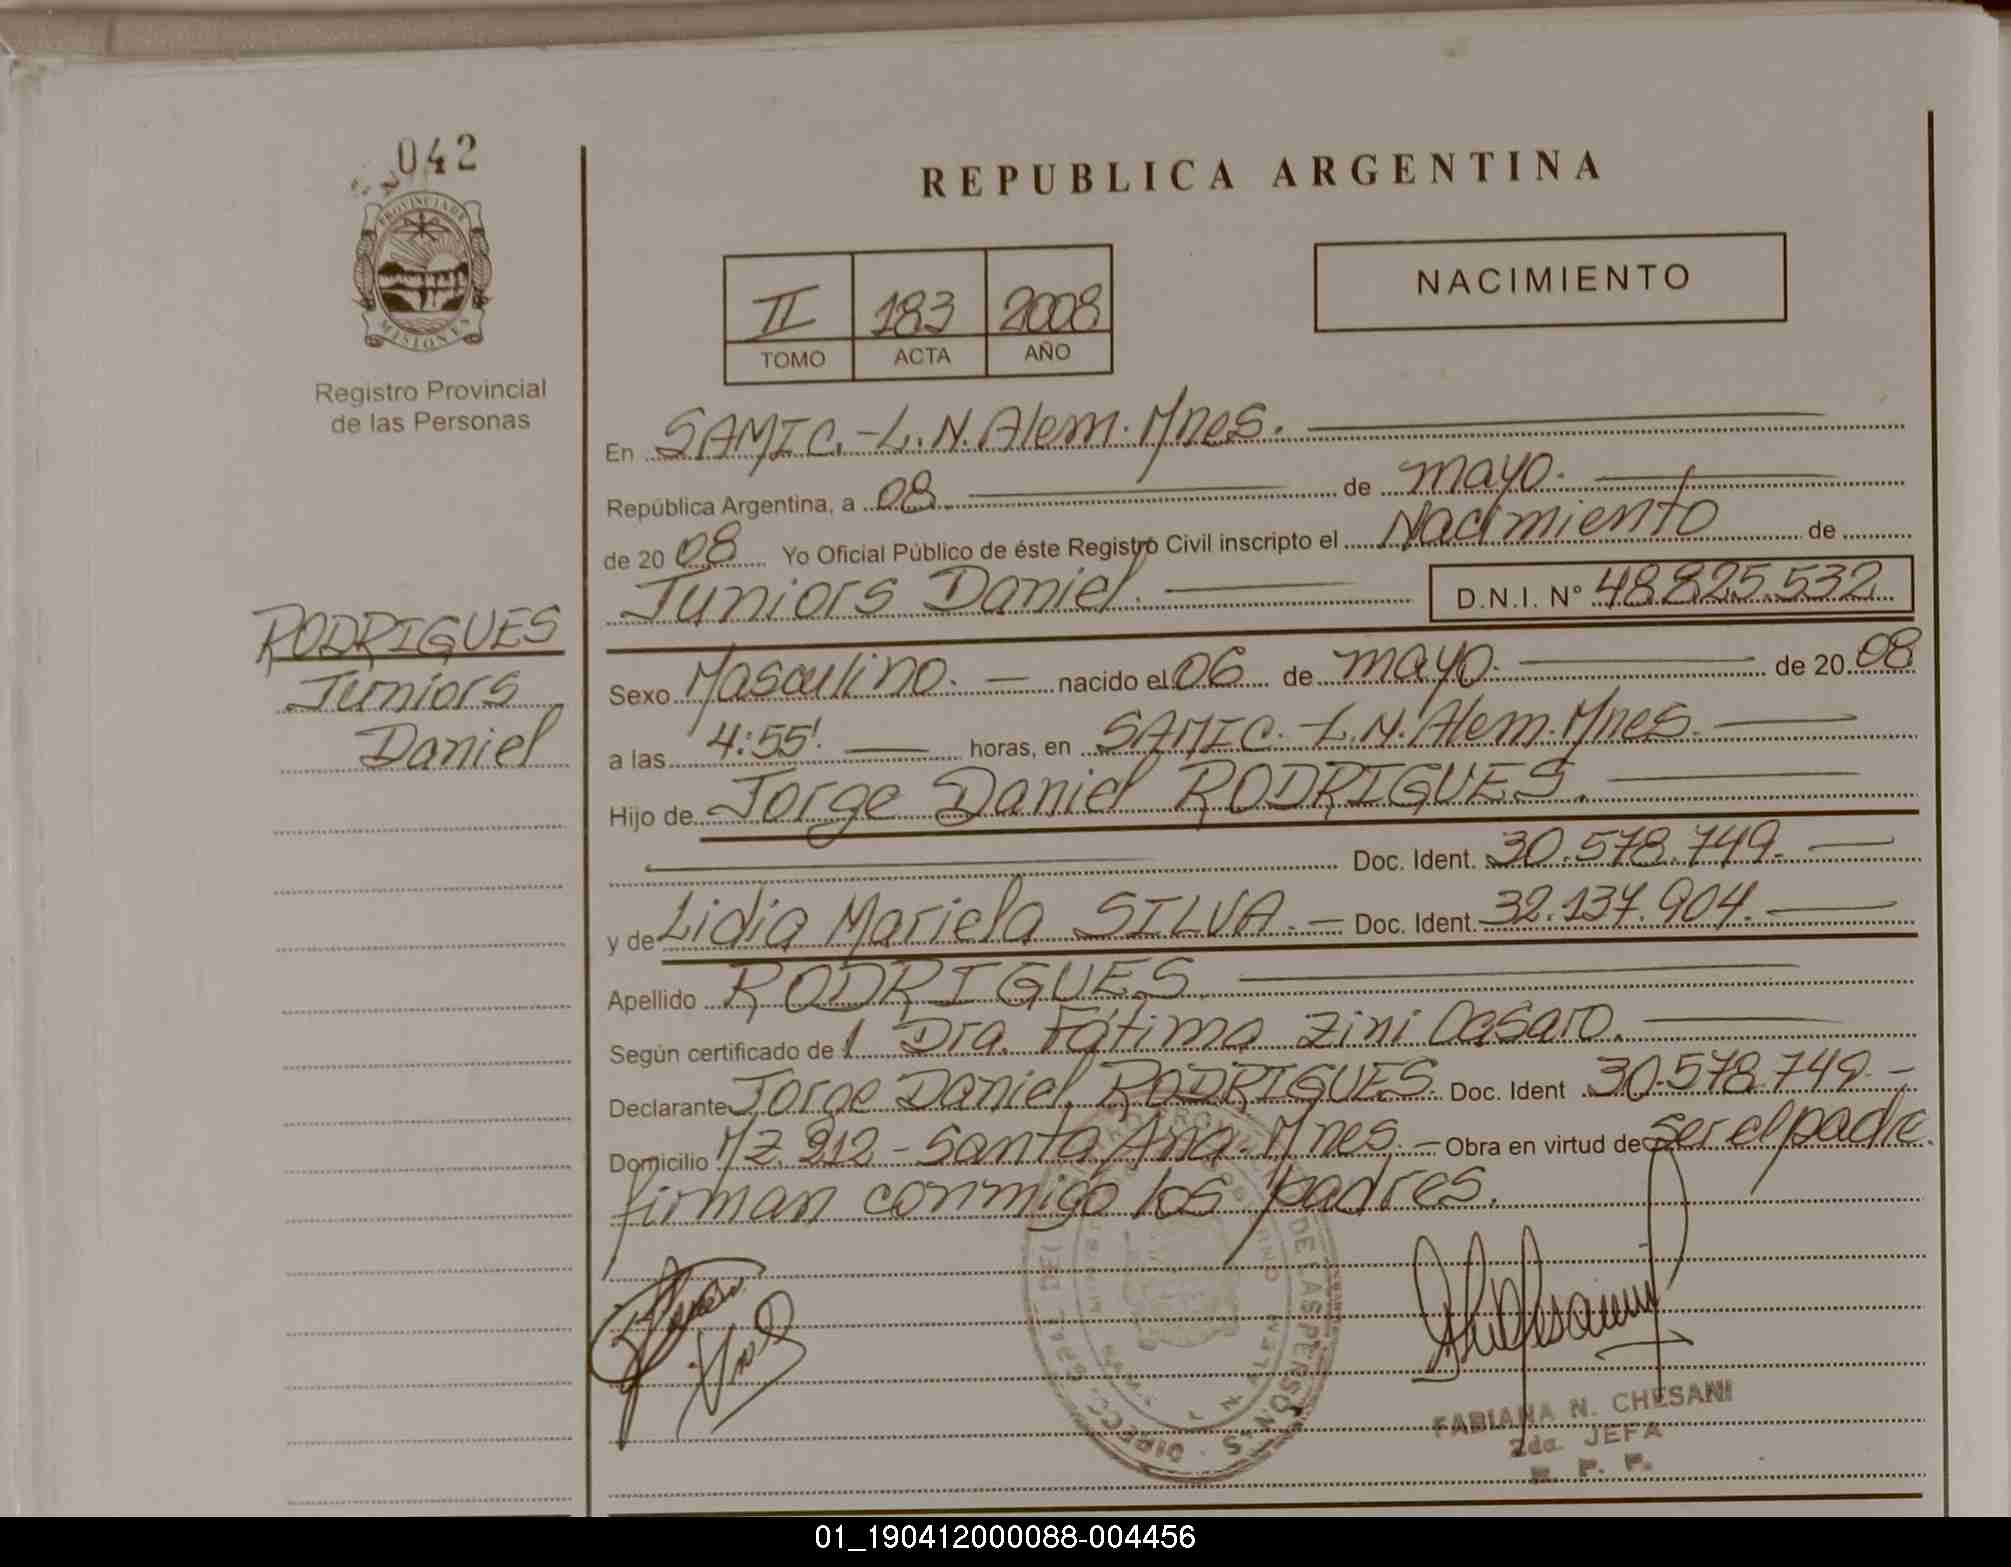 042
PROVINCIA DE
MISIONES
Registro Provincial
de las Personas
RODRIGUES
Juniors
Daniel
REPUBLICA ARGENTINA
II 183 2008
TOMO ACTA AÑO
NACIMIENTO
En SAMIC.-L.N.Alem.Mnes.
República Argentina, a 08 de mayo.
de 2008 Yo Oficial Público de éste Registro Civil inscripto el Nacimiento de
Juniors Daniel. D.N.I. N° 48.825.532
Sexo Masculino. nacido el 06 de mayo. de 2008
a las 4:55'. horas, en SAMIC.-L.N.Alem.Mnes.
Hijo de Jorge Daniel RODRIGUES.
Doc. Ident. 30.578.749.
y de Lidia Mariela SILVA. Doc. Ident. 32.137.904.
Apellido RODRIGUES
Según certificado de l Dra. Fátima Zini Casaro.
Declarante Jorge Daniel RODRIGUES. Doc. Ident 30.578.749.-
Domicilio Mz 212 - Santa Ana. Mnes. - Obra en virtud de ser el padre.
firman conmigo los padres.
DE LAS PERSONAS
L. N. ALEM
FABIANA N. CHESANI
2da. JEFA
R. P. P.
01_190412000088-004456